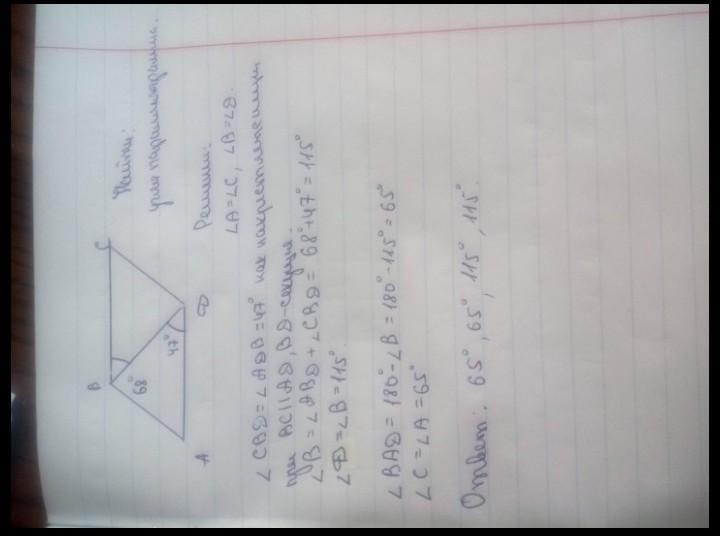 B
C
68°
47°
A
D
Найти:
углы параллелограмма.
Решение:
∠A=∠C, ∠B=∠D.
∠CBD=∠ADB=47° как накрест лежащие
при BC||AD, BD-секущая.
∠B=∠ABD+∠CBD=68°+47°=115°
∠D=∠B=115°.
∠BAD=180°-∠B=180°-115°=65°
∠C=∠A=65°
Ответ: 65°, 65°, 115°, 115°.